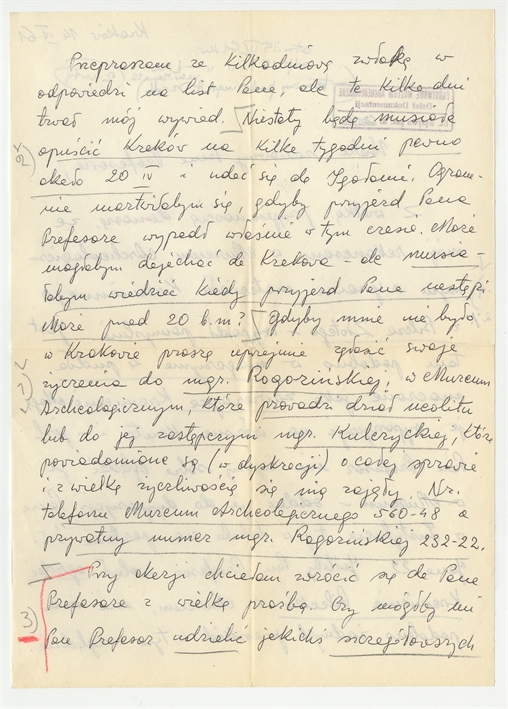 Przepraszam za kilkudniową zwłokę w
odpowiedzi na list Pana, ale te kilka dni
trwał mój wyjazd. Niestety będę musiała
opuścić Kraków na kilka tygodni pewno
około 20 IV i udać się do Igołomi. Ogrom-
nie martwiłabym się, gdyby przyjazd Pana
Profesora wypadł właśnie w tym czasie. Może
mogłabym dojechać do Krakowa ale musia-
łabym wiedzieć kiedy przyjazd Pana nastąpi.
Może przed 20 b.m? Gdyby mnie nie było
w Krakowie proszę uprzejmie zgłosić swoje
życzenia do mgr. Rogozińskiej, w Muzeum
Archeologicznym, która prowadzi dział neolitu
lub do jej zastępczyni mgr. Kulczyckiej, które
powiadomione są (w dyskrecji) o całej sprawie
i z wielką życzliwością się nią zajęły. Nr.
telefonu Muzeum Archeologicznego 560-48 a
prywatny numer mgr. Rogozińskiej 232-22.
Przy okazji chciałam zwrócić się do Pana
Profesora z wielką prośbą. Czy mógłby mi
3) Pan Profesor udzielić jakichś szczegółowszych